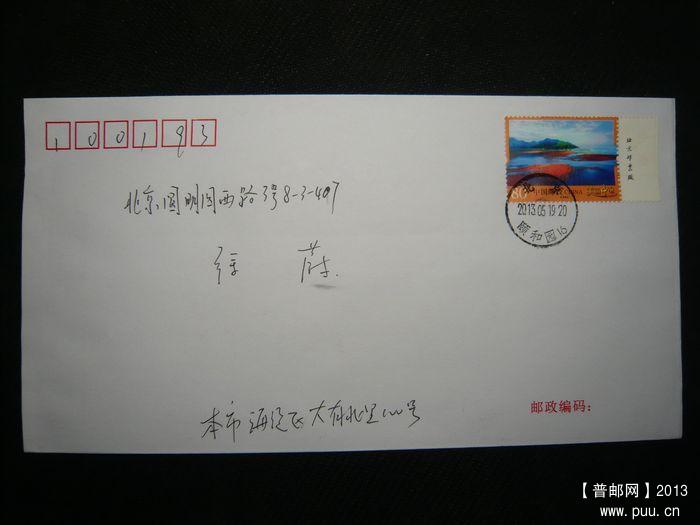 100193
北京圆明园西路3号8-3-407
80 中国邮政 CHINA
北京邮票厂
北京
2013.05.19.20
颐和园16
本市海淀区大有北里100号
邮政编码：
【普邮网】2013
www.puu.cn